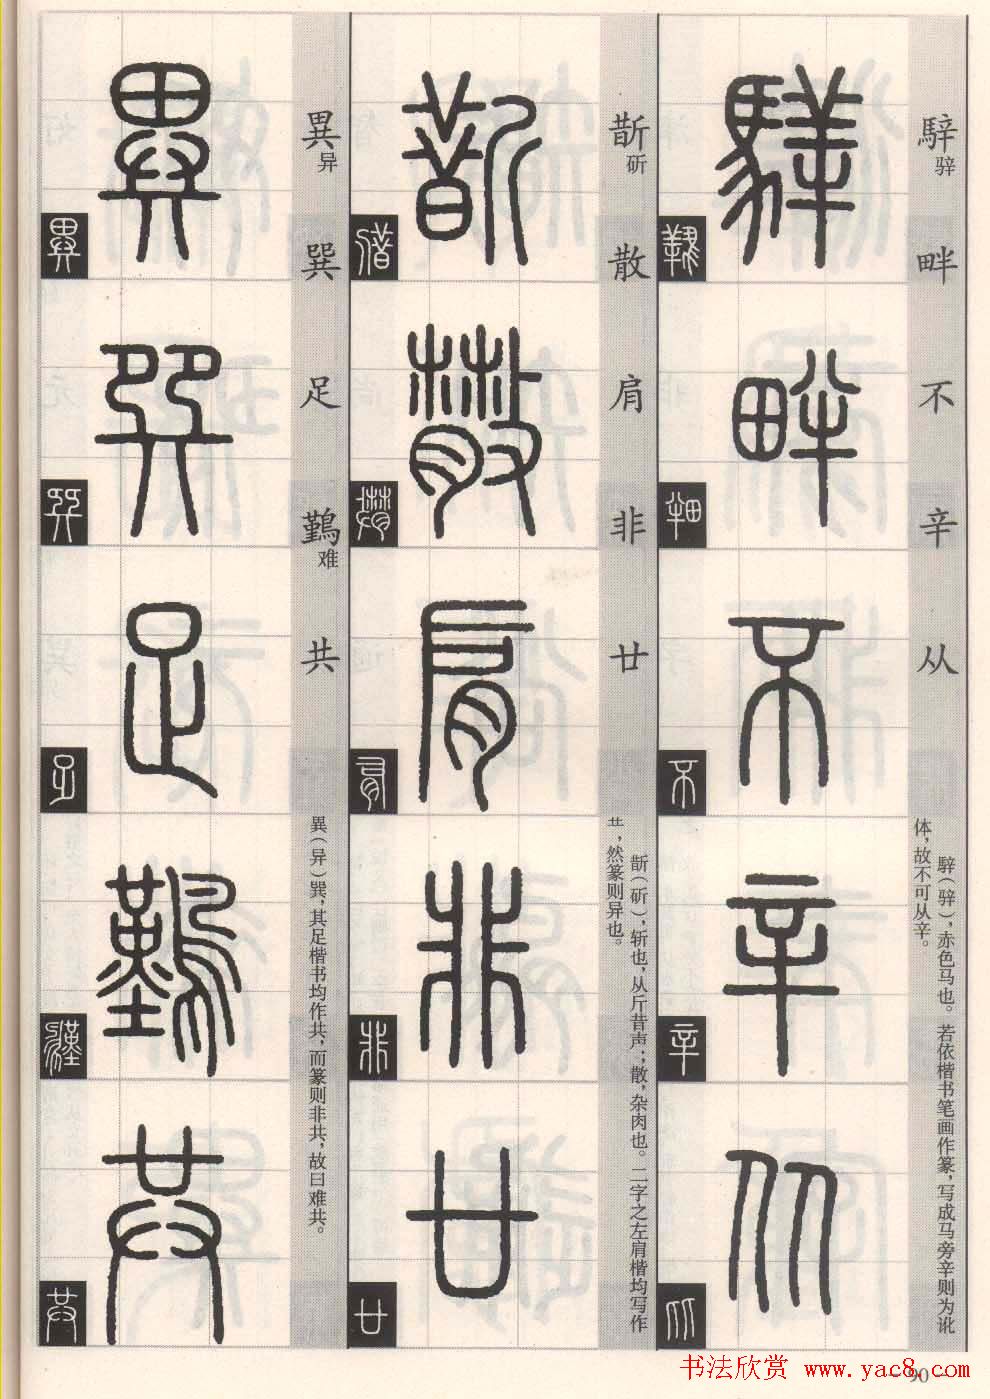 騂骍
畔
不
辛
从
騂（骍），赤色马也。若依楷书笔画作篆，写成马旁辛则为讹
体，故不可从辛。
斮斫
散
肩
非
廿
斮（斫），斩也，从斤昔声；散，杂肉也。二字之左肩楷均写作
龷，然篆则异也。
異异
巽
足
鷬难
共
異（异）巽，其足楷书均作共，而篆则非共，故曰难共。
90
书法欣赏 www.yac8.com